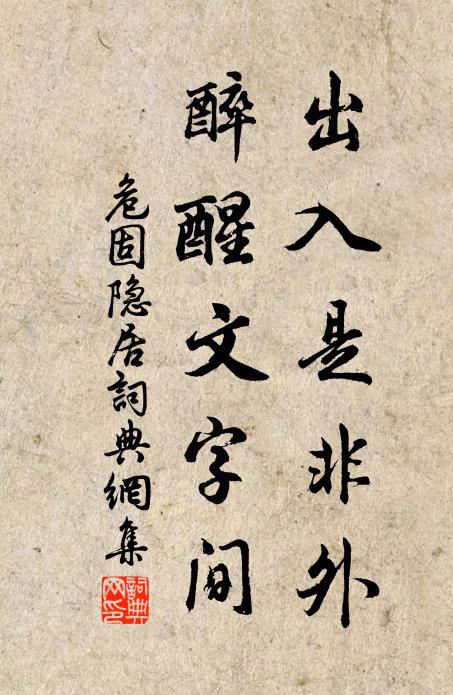 出入是非外
醉醒文字间
危固隐居詞典網集
詞典
网印